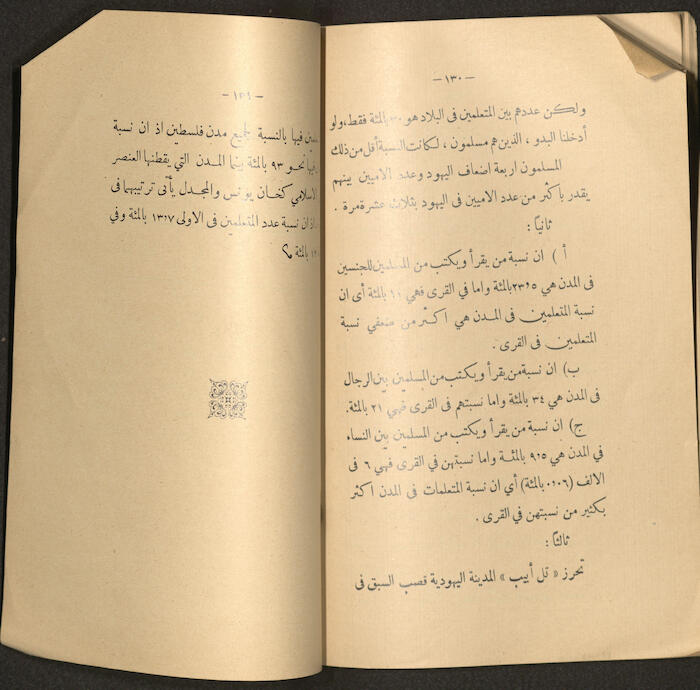 — ١٣٠ —
ولكن عددهم بين المتعلمين فى البلاد هو ٣٠ بالمئة فقط، ولو
أدخلنا البدو، الذين هم مسلمون، لكانت النسبة أقل من ذلك
المسلمون اربعة اضعاف اليهود وعدد الاميين بينهم
يقدر بأكثر من عدد الاميين فى اليهود بثلاث عشرة مرة.
ثانياً:
أ) ان نسبة من يقرأ ويكتب من المسلمين للجنسين
فى المدن هي ٢٣،٥ بالمئة واما فى القرى فهي ١٠ بالمئة أى ان
نسبة المتعلمين فى المدن هي اكثر من ضعفي نسبة
المتعلمين فى القرى.
ب) ان نسبة من يقرأ ويكتب من المسلمين بين الرجال
فى المدن هي ٣٤ بالمئة واما نسبتهم فى القرى فهي ٢١ بالمئة.
ج) ان نسبة من يقرأ ويكتب من المسلمين بين النساء
في المدن هي ٩،٥ بالمئة واما نسبتهن في القرى فهي ٦ فى
الالف (٠،٠٦ بالمئة) أي ان نسبة المتعلمات فى المدن اكثر
بكثير من نسبتهن في القرى.
ثالثاً:
تحرز «تل أبيب» المدينة اليهودية قصب السبق فى
— ١٣١ —
فيها بالنسبة لجميع مدن فلسطين اذ ان نسبة
نحو ٩٣ بالمئة بينما المدن التي يقطنها العنصر
الاسلامي كخان يونس والمجدل يأتى ترتيبهما فى
ان نسبة عدد المتعلمين فى الاولى ١٣،٧ بالمئة وفي
بالمئة